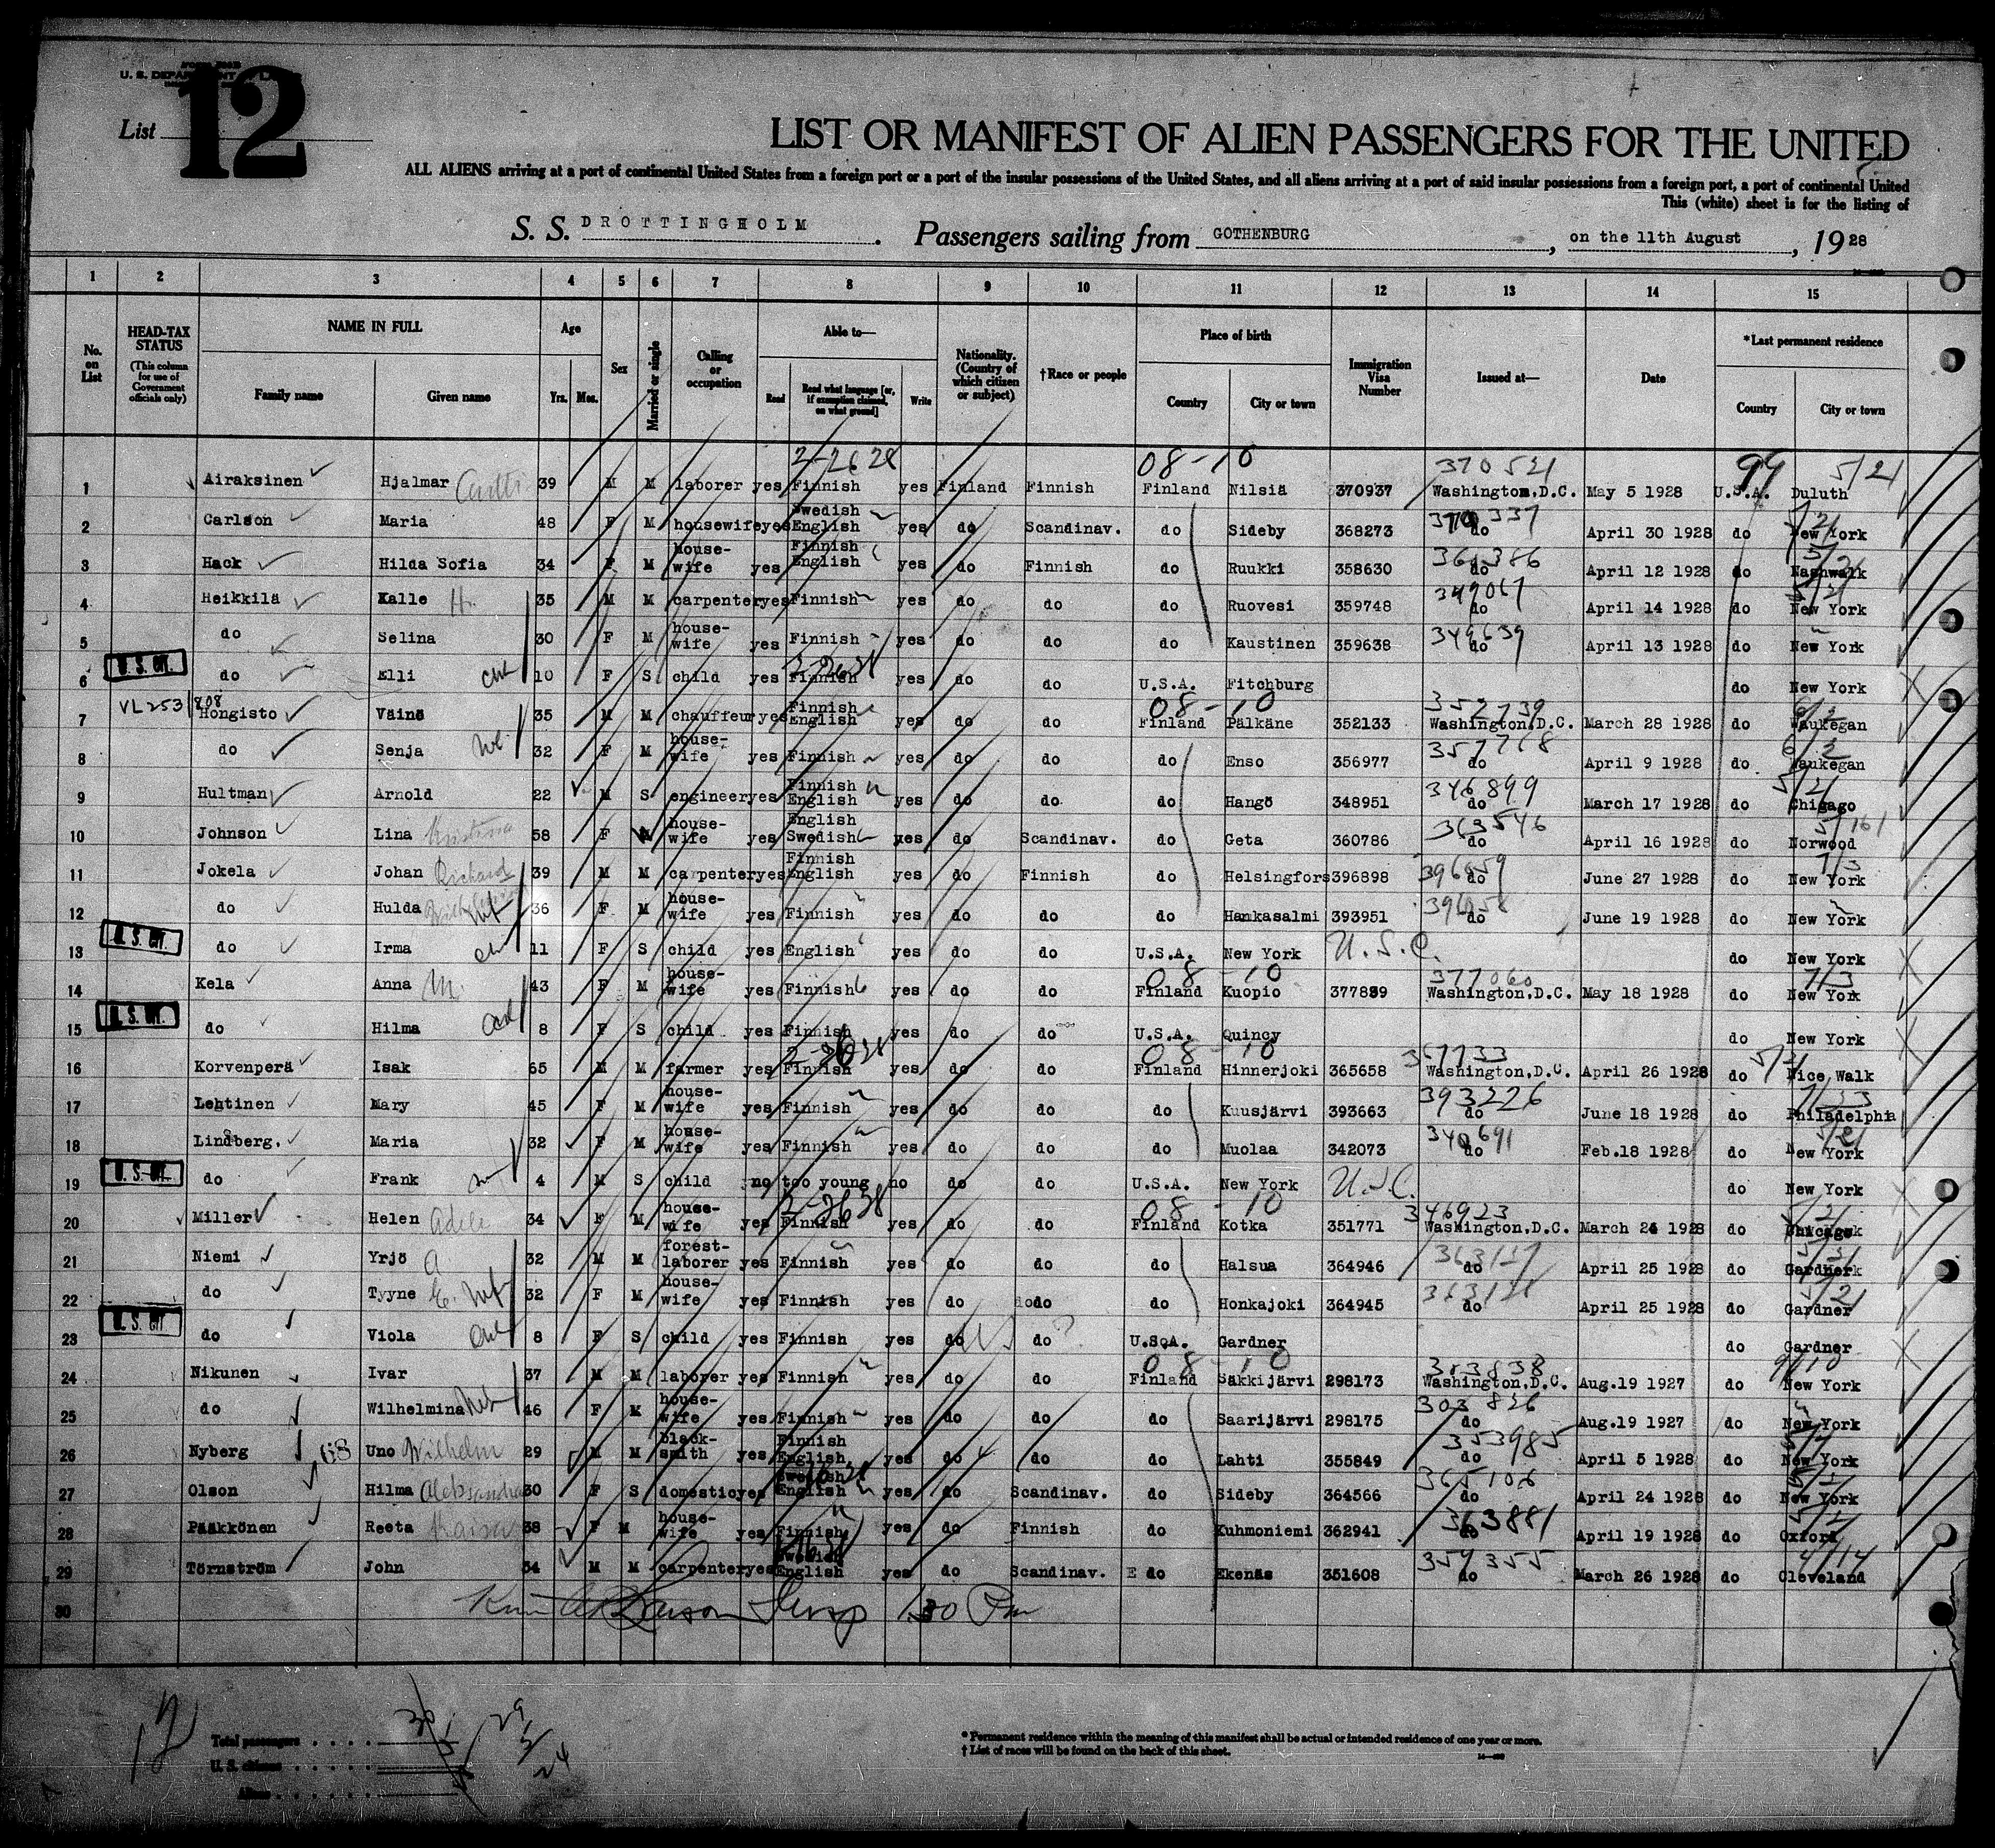 FORM 500B
U. S. DEPARTMENT OF LABOR
List 12
LIST OR MANIFEST OF ALIEN PASSENGERS FOR THE UNITED
ALL ALIENS arriving at a port of continental United States from a foreign port or a port of the insular possessions of the United States, and all aliens arriving at a port of said insular possessions from a foreign port, a port of continental United
This (white) sheet is for the listing of
S. S. DROTTINGHOLM. Passengers sailing from GOTHENBURG, on the 11th August, 1928
1 2 3 4 5 6 7 8 9 10 11 12 13 14 15
No. on List HEAD-TAX STATUS (This column for use of Government officials only) NAME IN FULL Family name Given name Age Yrs. Mos. Sex Married or single Calling or occupation Able to— Read Read what language [or, if exemption claimed, on what ground] Write Nationality. (Country of which citizen or subject) †Race or people Place of birth Country City or town Immigration Visa Number Issued at— Date *Last permanent residence Country City or town
2-26 28 08-10 370521 99 5/21
1 Airaksinen Hjalmar Antti 39 M M laborer yes Finnish yes Finland Finnish Finland Nilsiä 370937 Washington,D.C. May 5 1928 U.S.A. Duluth
2 Carlson Maria 48 F M housewife yes Swedish English yes do Scandinav. do Sideby 368273 do April 30 1928 do New York
3 Hack Hilda Sofia 34 F M house-wife yes Finnish English yes do Finnish do Ruukki 358630 361386 do April 12 1928 do Nashwalk
4 Heikkilä Kalle H. 35 M M carpenter yes Finnish yes do do do Ruovesi 359748 349067 do April 14 1928 do New York
5 do Selina 30 F M house-wife yes Finnish yes do do do Kaustinen 359638 349639 do April 13 1928 do New York
6 U. S. CIT. do Elli chd 10 F S child yes Finnish yes do do U.S.A. Fitchburg do New York
VL 253/808 08-10 352739
7 Hongisto Väinö 35 M M chauffeur yes Finnish English yes do do Finland Pälkäne 352133 Washington,D.C. March 28 1928 do Waukegan
8 do Senja 32 F M house-wife yes Finnish yes do do do Enso 356977 357768 do April 9 1928 do Waukegan
9 Hultman Arnold 22 M S engineer yes Finnish English yes do do do Hangö 348951 346899 do March 17 1928 do Chigago
10 Johnson Lina Kristina 58 F M house-wife yes English Swedish yes do Scandinav. do Geta 360786 363546 do April 16 1928 do Norwood
11 Jokela Johan Richard 39 M M carpenter yes Finnish English yes do Finnish do Helsingfors 396898 396859 do June 27 1928 do New York
12 do Hulda Wilhelmina wf 36 F M house-wife yes Finnish yes do do do Hankasalmi 393951 do June 19 1928 do New York
13 U. S. CIT. do Irma 11 F S child yes English yes do do U.S.A. New York U.S.C. do New York
08-10 377060 7/3
14 Kela Anna M. 43 F M house-wife yes Finnish yes do do Finland Kuopio 377889 Washington,D.C. May 18 1928 do New York
15 U. S. CIT. do Hilma 8 F S child yes Finnish yes do do U.S.A. Quincy do New York
08-10 367733
16 Korvenperä Isak 65 M M farmer yes Finnish yes do do Finland Hinnerjoki 365658 Washington,D.C. April 26 1928 do Nice Walk
17 Lehtinen Mary 45 F M house-wife yes Finnish yes do do do Kuusjärvi 393663 393226 do June 18 1928 do Philadelphia
18 Lindberg. Maria 32 F M house-wife yes Finnish yes do do do Muolaa 342073 340691 do Feb.18 1928 do New York
19 U. S. CIT. do Frank 4 M S child no too young no do do U.S.A. New York U.S.C. do New York
08-10 346923
20 Miller Helen Adele 34 F M house-wife yes Finnish yes do do Finland Kotka 351771 Washington,D.C. March 24 1928 do Chicago
21 Niemi Yrjö A 32 M M forest-laborer yes Finnish yes do do do Halsua 364946 do April 25 1928 do Gardner
22 do Tyyne E. wf 32 F M house-wife yes Finnish yes do do do Honkajoki 364945 do April 25 1928 do Gardner
23 U. S. CIT. do Viola 8 F S child yes Finnish yes do do U.S.A. Gardner do Gardner
08-10 303838 9/10
24 Nikunen Ivar 37 M M laborer yes Finnish yes do do Finland Säkkijärvi 298173 Washington,D.C. Aug.19 1927 do New York
25 do Wilhelmina 46 F M house-wife yes Finnish yes do do do Saarijärvi 298175 303826 do Aug.19 1927 do New York
26 Nyberg 68 Uno Wilhelm 29 M M black-smith yes Finnish English yes do do do Lahti 355849 353985 do April 5 1928 do New York
27 Olson Hilma Aleksandra 30 F S domestic yes Swedish English yes do Scandinav. do Sideby 364566 365106 do April 24 1928 do New York
28 Pääkkönen Reeta Kaisa 38 F M house-wife yes Finnish yes do Finnish do Kuhmoniemi 362941 363881 do April 19 1928 do Oxford
29 Törnström John 34 M M carpenter yes Swedish English yes do Scandinav. do Ekenäs 351608 354355 do March 26 1928 do Cleveland 4/14
30 1 30 Pm
12
Total passengers
U. S. citizens
Aliens
29
5
24
* Permanent residence within the meaning of this manifest shall be actual or intended residence of one year or more.
† List of races will be found on the back of this sheet.